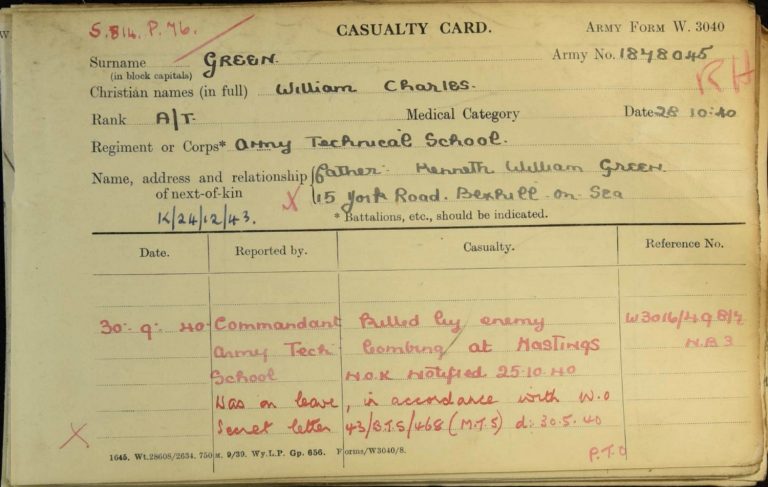 S.814. P.76.
CASUALTY CARD.
ARMY FORM W. 3040
Surname GREEN.
(in block capitals)
Army No. 1878045
RH
Christian names (in full) William Charles.
Rank A/T.
Medical Category
Date 28 10:40
Regiment or Corps* Army Technical School.
Name, address and relationship of next-of-kin
father: Kenneth William GREEN
15 York Road. Bexhill-on-Sea
K/24/12/43.
X
* Battalions, etc., should be indicated.
Date. Reported by. Casualty. Reference No.
30. 9. 40. Commandant Killed by enemy W3016/498/7
Army Tech bombing at HASTINGS N.B3
School N.O.K Notified 25.10.40
Was on leave, in accordance with W.O
Secret letter 43/B.T.S/468 (M.T.5) d: 30.5.40
X
P.T.O
1645. Wt.28608/2634. 750M. 9/39. Wy.L.P. Gp. 656. Forms/W3040/8.